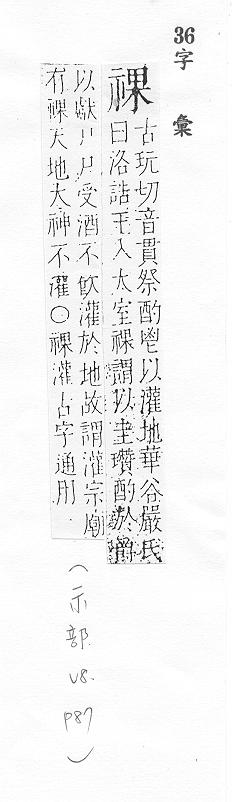 36字 彙
祼
古玩切音貫祭酌鬯以灌地華谷嚴氏
曰洛誥王入太室祼謂以圭瓚酌於爵
以獻尸尸受酒不飲灌於地故謂灌宗廟
有祼天地大神不灌○祼灌古字通用
(示部 V8. P87)